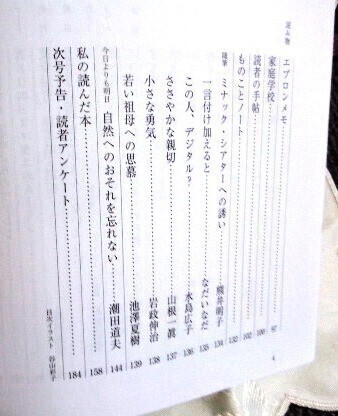 読み物
エプロンメモ……97
家庭学校……100
読者の手帖……102
ものことノート……132
随筆 ミナック・シアターへの誘い……熊井明子 134
一言付け加えると……なだいなだ 135
この人、デジタル?……水島広子 136
ささやかな親切……山根一眞 137
小さな勇気……岩政伸治 138
若い祖母への思慕……池澤夏樹 139
今日よりも明日 自然へのおそれを忘れない……潮田道夫 144
私の読んだ本……158
次号予告・読者アンケート……184
目次イラスト 谷山彩子
4